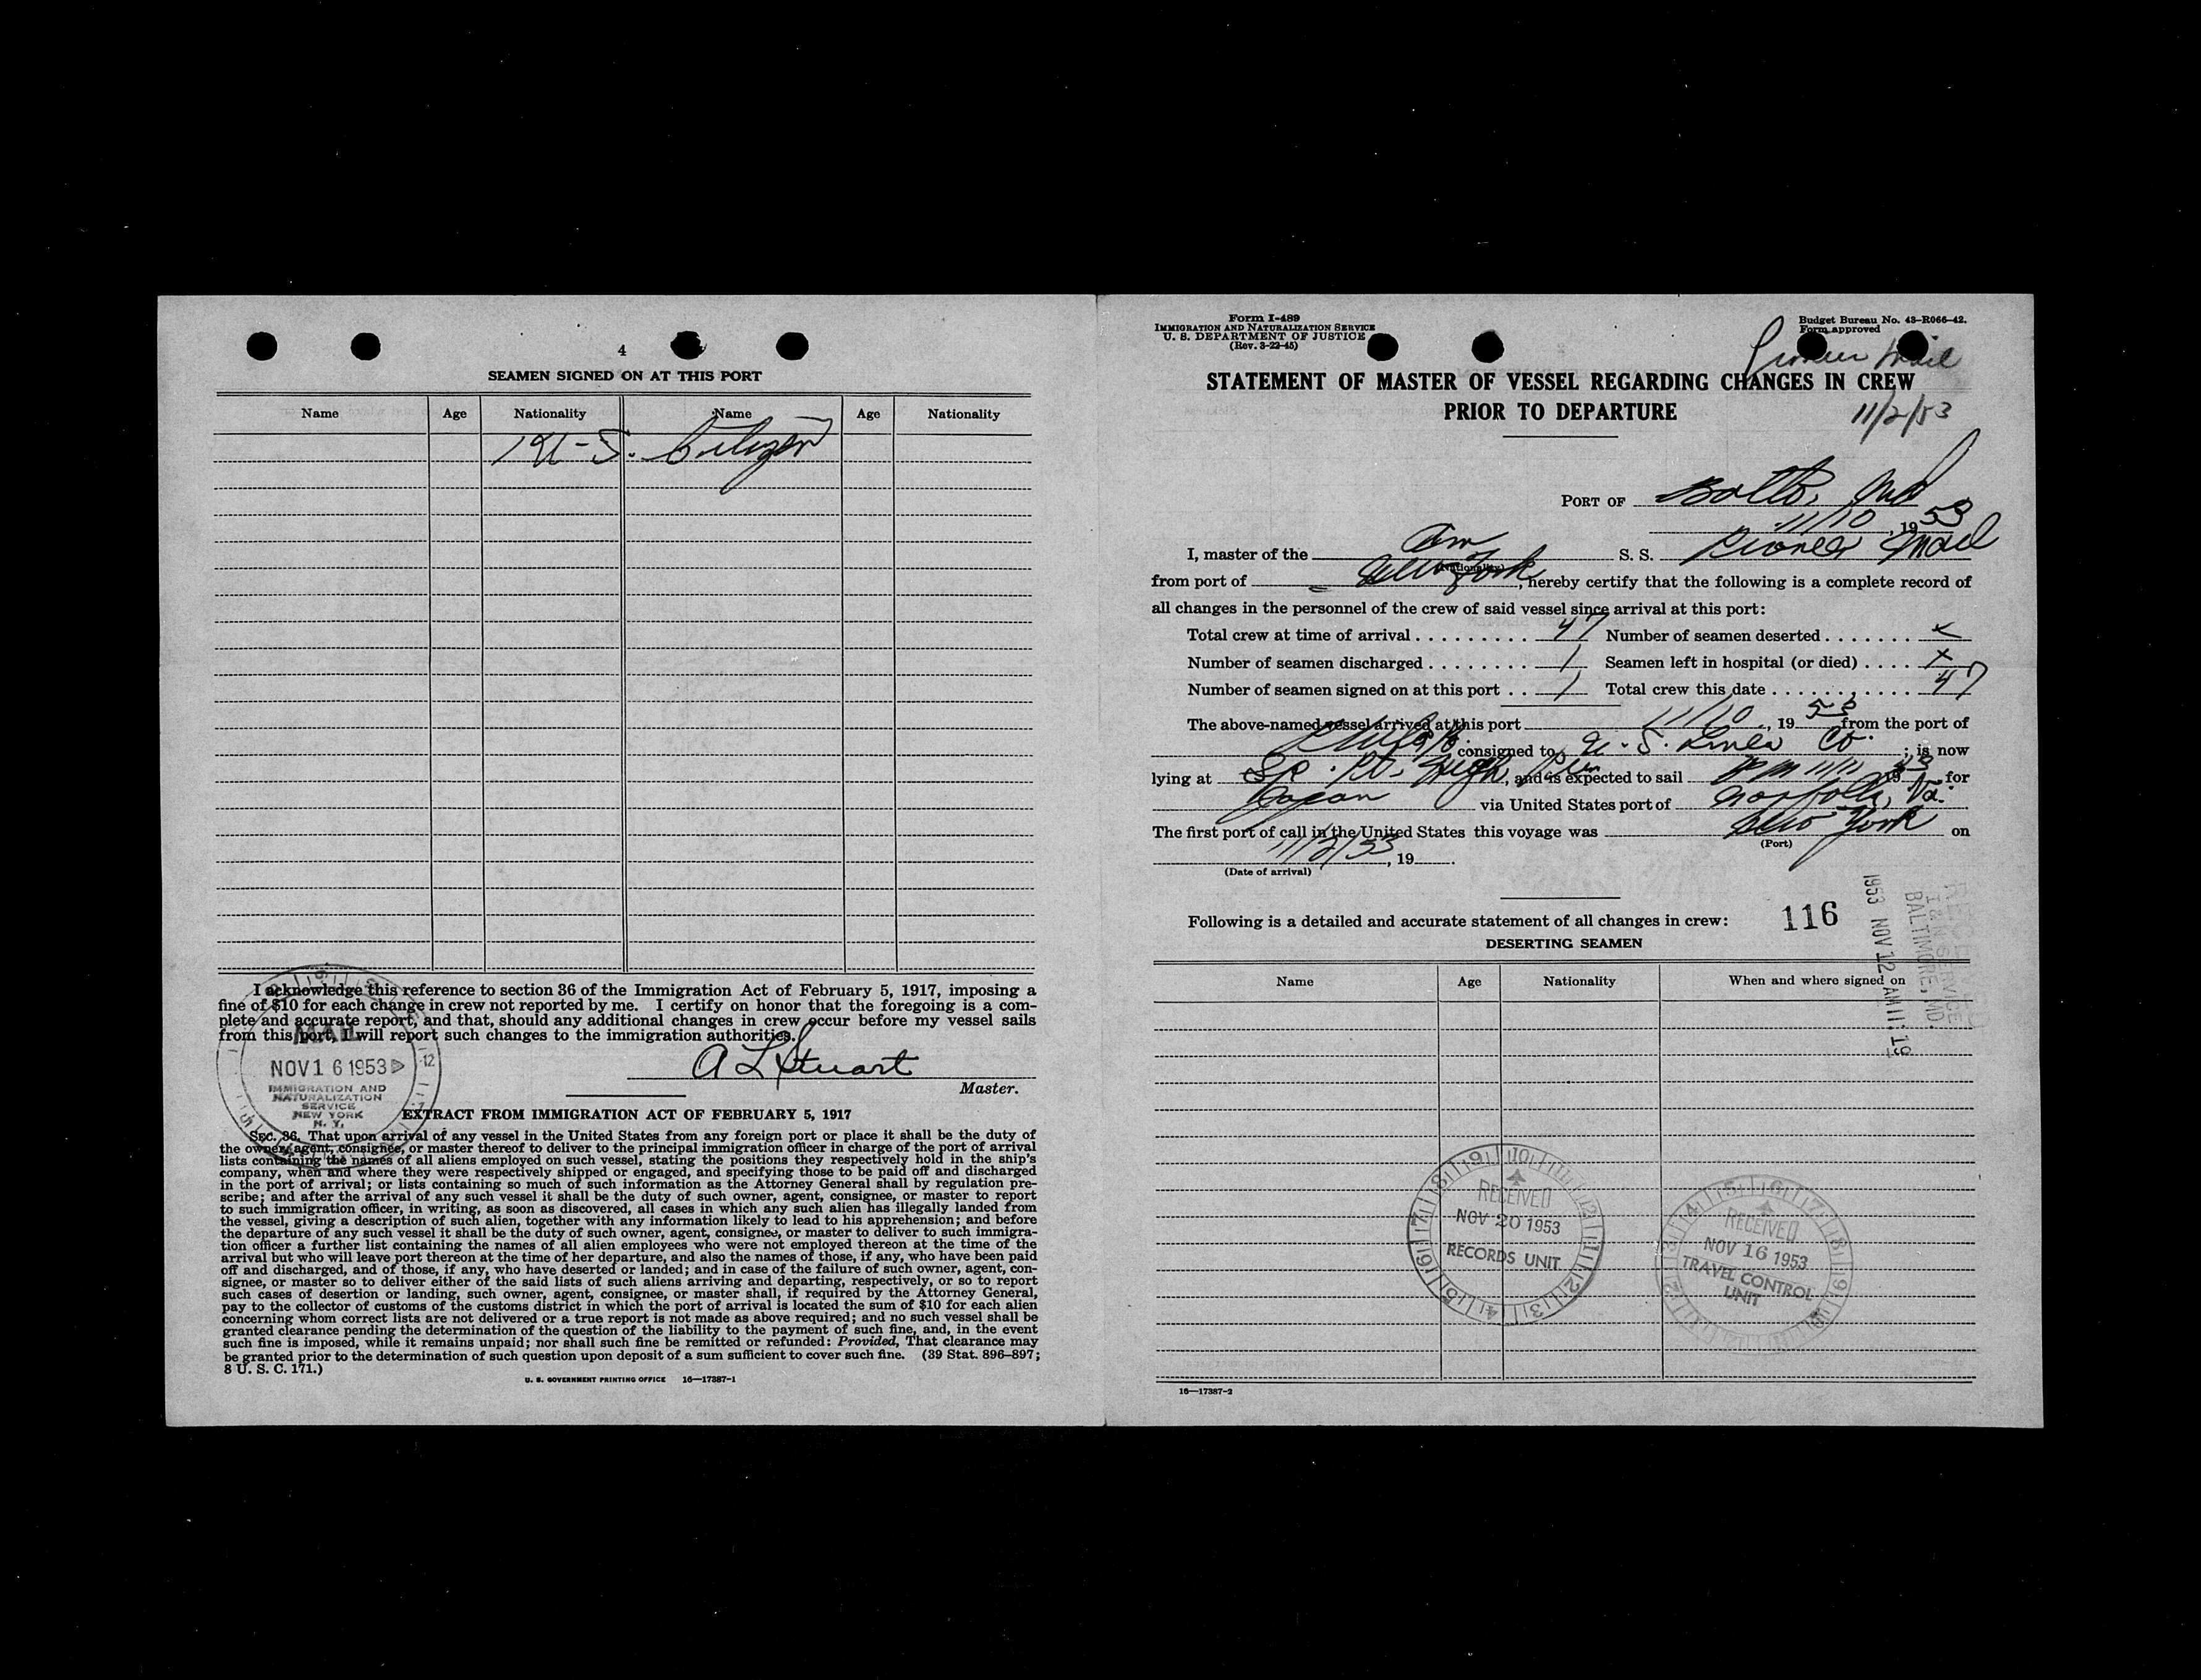 4
SEAMEN SIGNED ON AT THIS PORT
Name Age Nationality Name Age Nationality
1 U-S. Citizen
I acknowledge this reference to section 36 of the Immigration Act of February 5, 1917, imposing a
fine of $10 for each change in crew not reported by me. I certify on honor that the foregoing is a com-
plete and accurate report, and that, should any additional changes in crew occur before my vessel sails
from this port, I will report such changes to the immigration authorities.
A L Stuart
Master.
MAIL
NOV 16 1953
IMMIGRATION AND
NATURALIZATION
SERVICE
NEW YORK
N. Y.
EXTRACT FROM IMMIGRATION ACT OF FEBRUARY 5, 1917
SEC. 36. That upon arrival of any vessel in the United States from any foreign port or place it shall be the duty of
the owner, agent, consignee, or master thereof to deliver to the principal immigration officer in charge of the port of arrival
lists containing the names of all aliens employed on such vessel, stating the positions they respectively hold in the ship's
company, when and where they were respectively shipped or engaged, and specifying those to be paid off and discharged
in the port of arrival; or lists containing so much of such information as the Attorney General shall by regulation pre-
scribe; and after the arrival of any such vessel it shall be the duty of such owner, agent, consignee, or master to report
to such immigration officer, in writing, as soon as discovered, all cases in which any such alien has illegally landed from
the vessel, giving a description of such alien, together with any information likely to lead to his apprehension; and before
the departure of any such vessel it shall be the duty of such owner, agent, consignee, or master to deliver to such immigra-
tion officer a further list containing the names of all alien employees who were not employed thereon at the time of the
arrival but who will leave port thereon at the time of her departure, and also the names of those, if any, who have been paid
off and discharged, and of those, if any, who have deserted or landed; and in case of the failure of such owner, agent, con-
signee, or master so to deliver either of the said lists of such aliens arriving and departing, respectively, or so to report
such cases of desertion or landing, such owner, agent, consignee, or master shall, if required by the Attorney General,
pay to the collector of customs of the customs district in which the port of arrival is located the sum of $10 for each alien
concerning whom correct lists are not delivered or a true report is not made as above required; and no such vessel shall be
granted clearance pending the determination of the question of the liability to the payment of such fine, and, in the event
such fine is imposed, while it remains unpaid; nor shall such fine be remitted or refunded: Provided, That clearance may
be granted prior to the determination of such question upon deposit of a sum sufficient to cover such fine. (39 Stat. 896–897;
8 U. S. C. 171.)
U. S. GOVERNMENT PRINTING OFFICE 16—17387-1
Form I-489
IMMIGRATION AND NATURALIZATION SERVICE
U. S. DEPARTMENT OF JUSTICE
(Rev. 3-22-45)
Budget Bureau No. 43-R066-42.
Form approved
Pioneer Mail
STATEMENT OF MASTER OF VESSEL REGARDING CHANGES IN CREW
PRIOR TO DEPARTURE
11/2/53
PORT OF Balto, Md
11/10, 1953
I, master of the Am S. S. Pioneer Mail
(Nationality)
from port of New York, hereby certify that the following is a complete record of
all changes in the personnel of the crew of said vessel since arrival at this port:
Total crew at time of arrival . . . . . . . . . 47 Number of seamen deserted . . . . . . . x
Number of seamen discharged . . . . . . . . 1 Seamen left in hospital (or died) . . . . x
Number of seamen signed on at this port . . 1 Total crew this date . . . . . . . . . . . 47
The above-named vessel arrived at this port 11/10, 1953 from the port of
consigned to U. S. Lines Co.; is now
lying at , and is expected to sail PM 11/11 1953 for
Japan via United States port of Norfolk, Va.
The first port of call in the United States this voyage was New York on
(Port)
11/2/53, 19
(Date of arrival)
Following is a detailed and accurate statement of all changes in crew: 116
1953 NOV 12 AM 11:19
BALTIMORE, MD.
DESERTING SEAMEN
Name Age Nationality When and where signed on
RECEIVED
NOV 20 1953
RECORDS UNIT
RECEIVED
NOV 16 1953
TRAVEL CONTROL
UNIT
16—17387-2